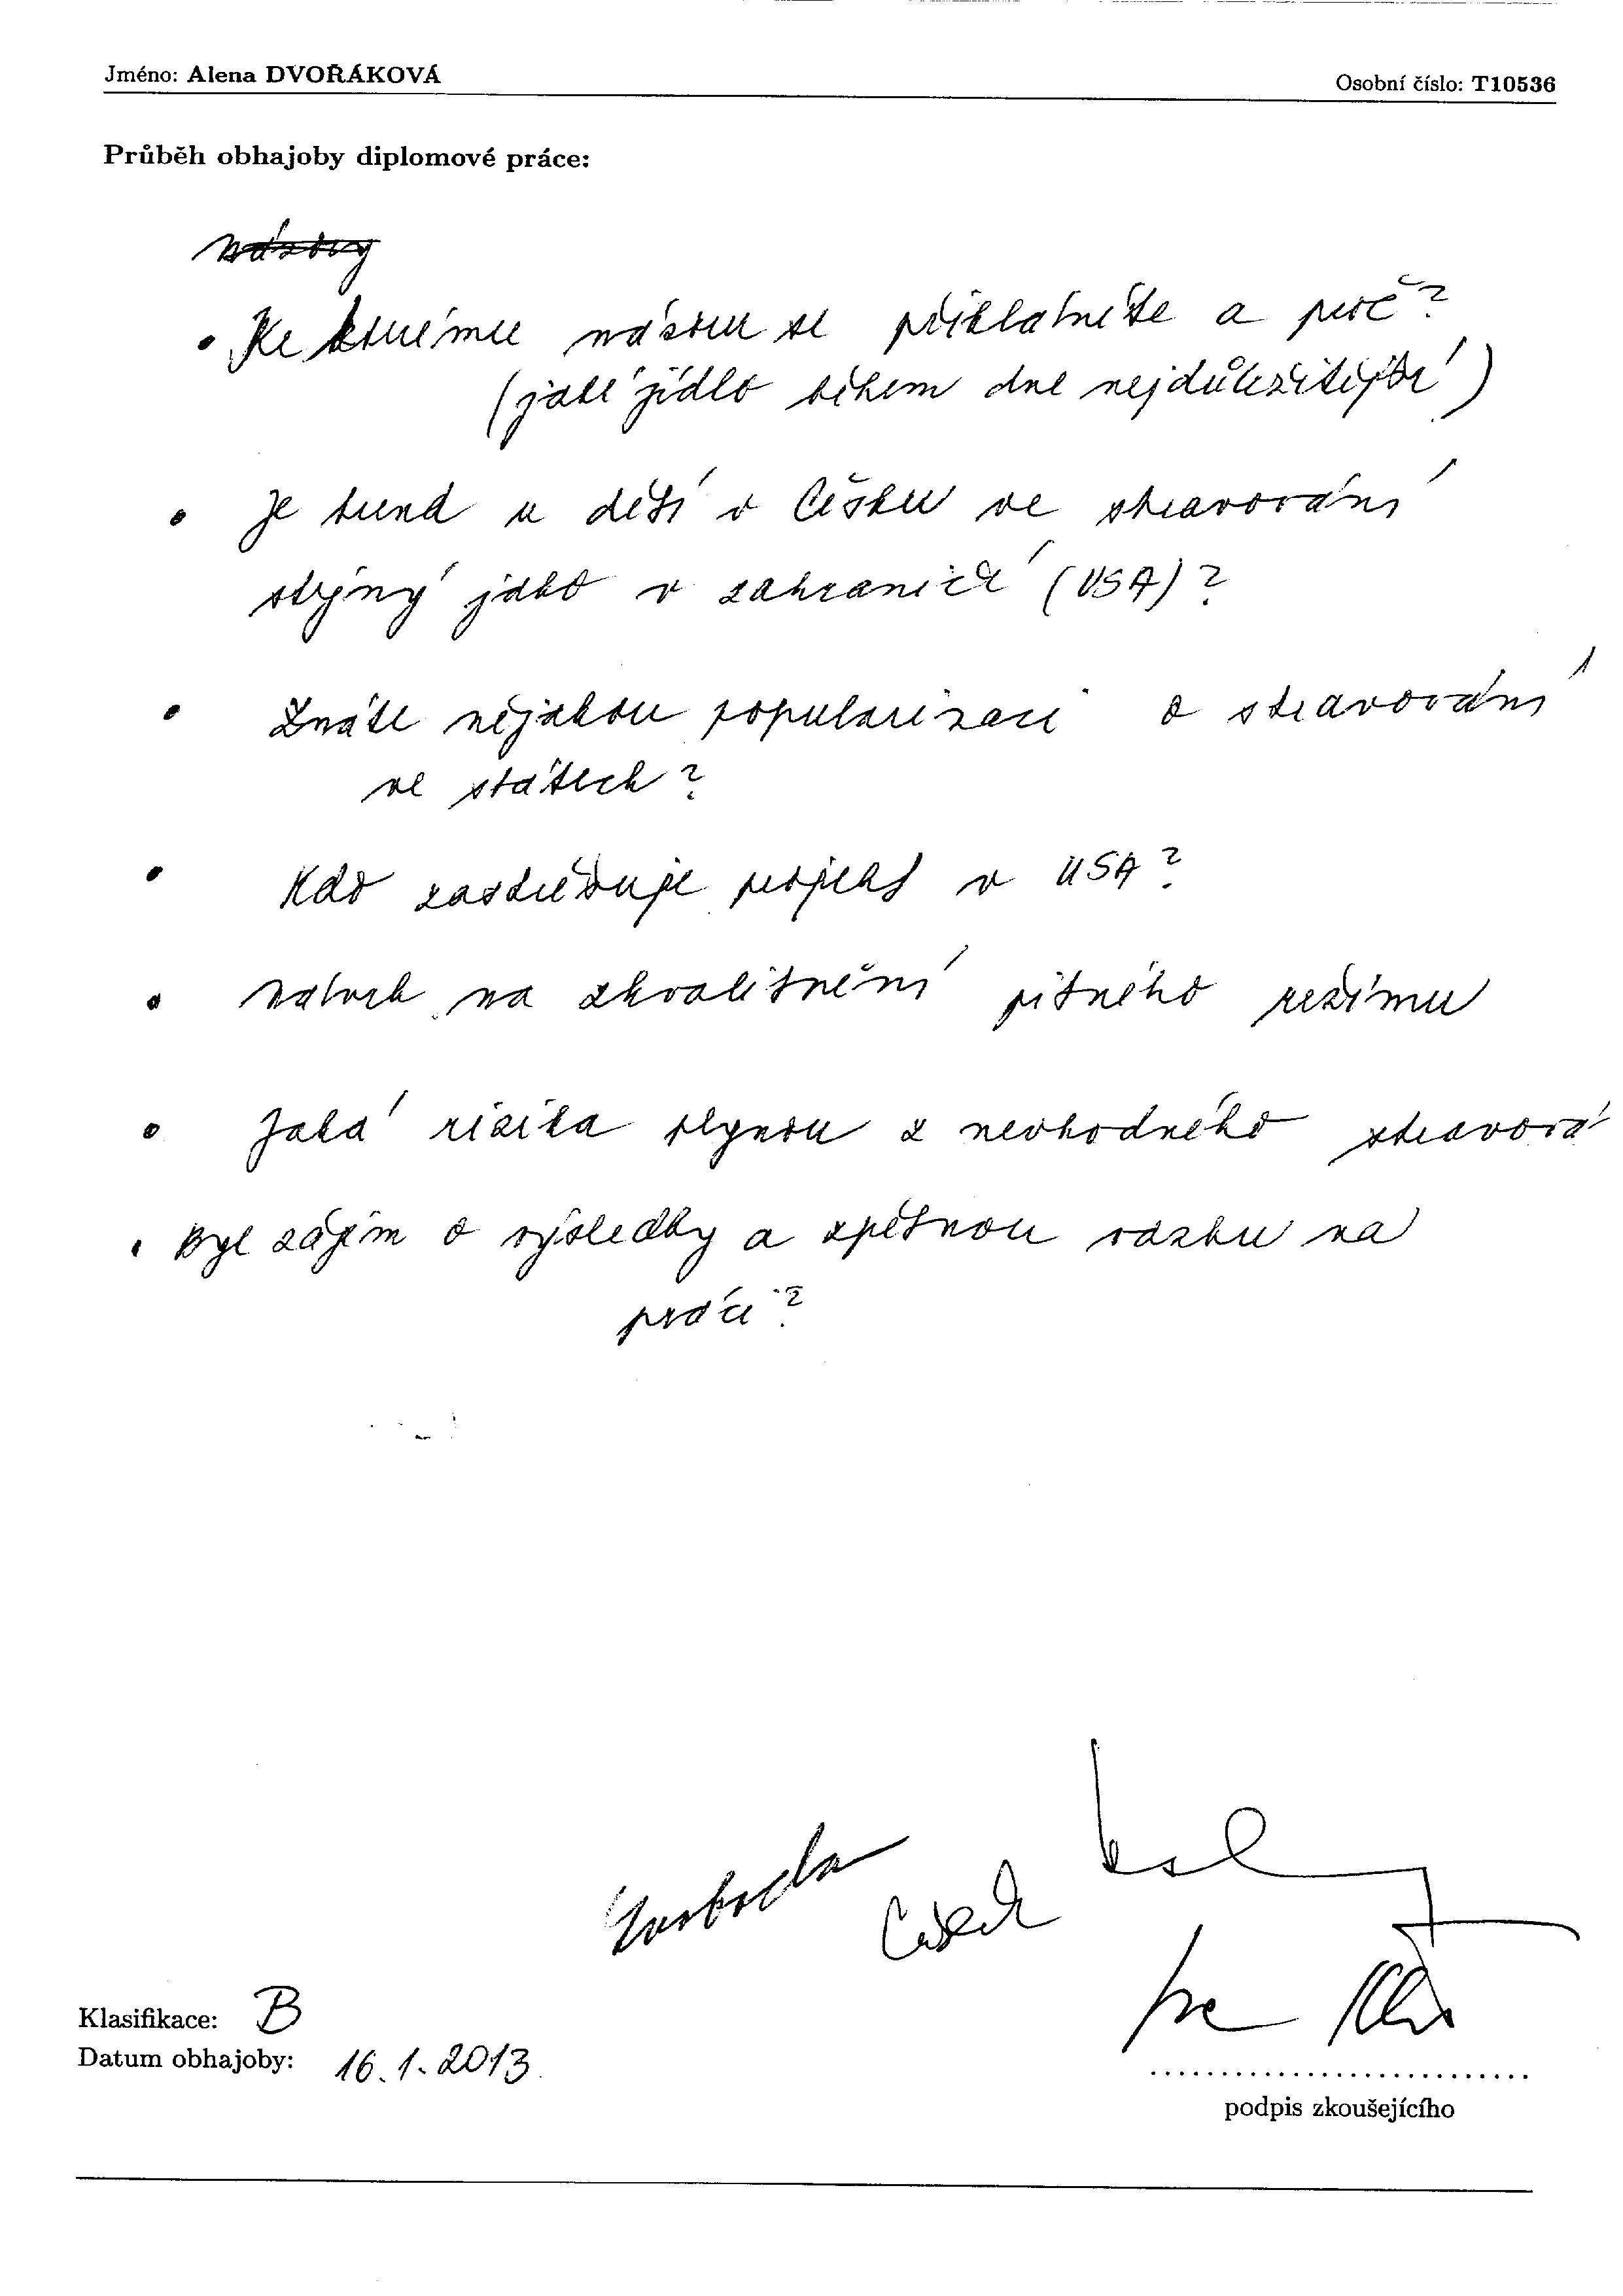 Jméno: Alena DVOŘÁKOVÁ
Osobní číslo: T10536
Průběh obhajoby diplomové práce:
názory
• Ke kterému názoru se přikláníte a proč?
(jaké jídlo během dne nejdůležitější)
• Je trend u dětí v Česku ve stravování
stejný jako v zahraničí (USA)?
• Znáte nějakou popularizaci o stravování
ve státech?
• Kdo zastřešuje projekt v USA?
• Návrh na zkvalitnění pitného režimu
• Jaká rizika plynou z nevhodného stravová
• Byl zájem o výsledky a zpětnou vazbu na
práci?
Svoboda
Klasifikace: B
Datum obhajoby: 16.1.2013
podpis zkoušejícího